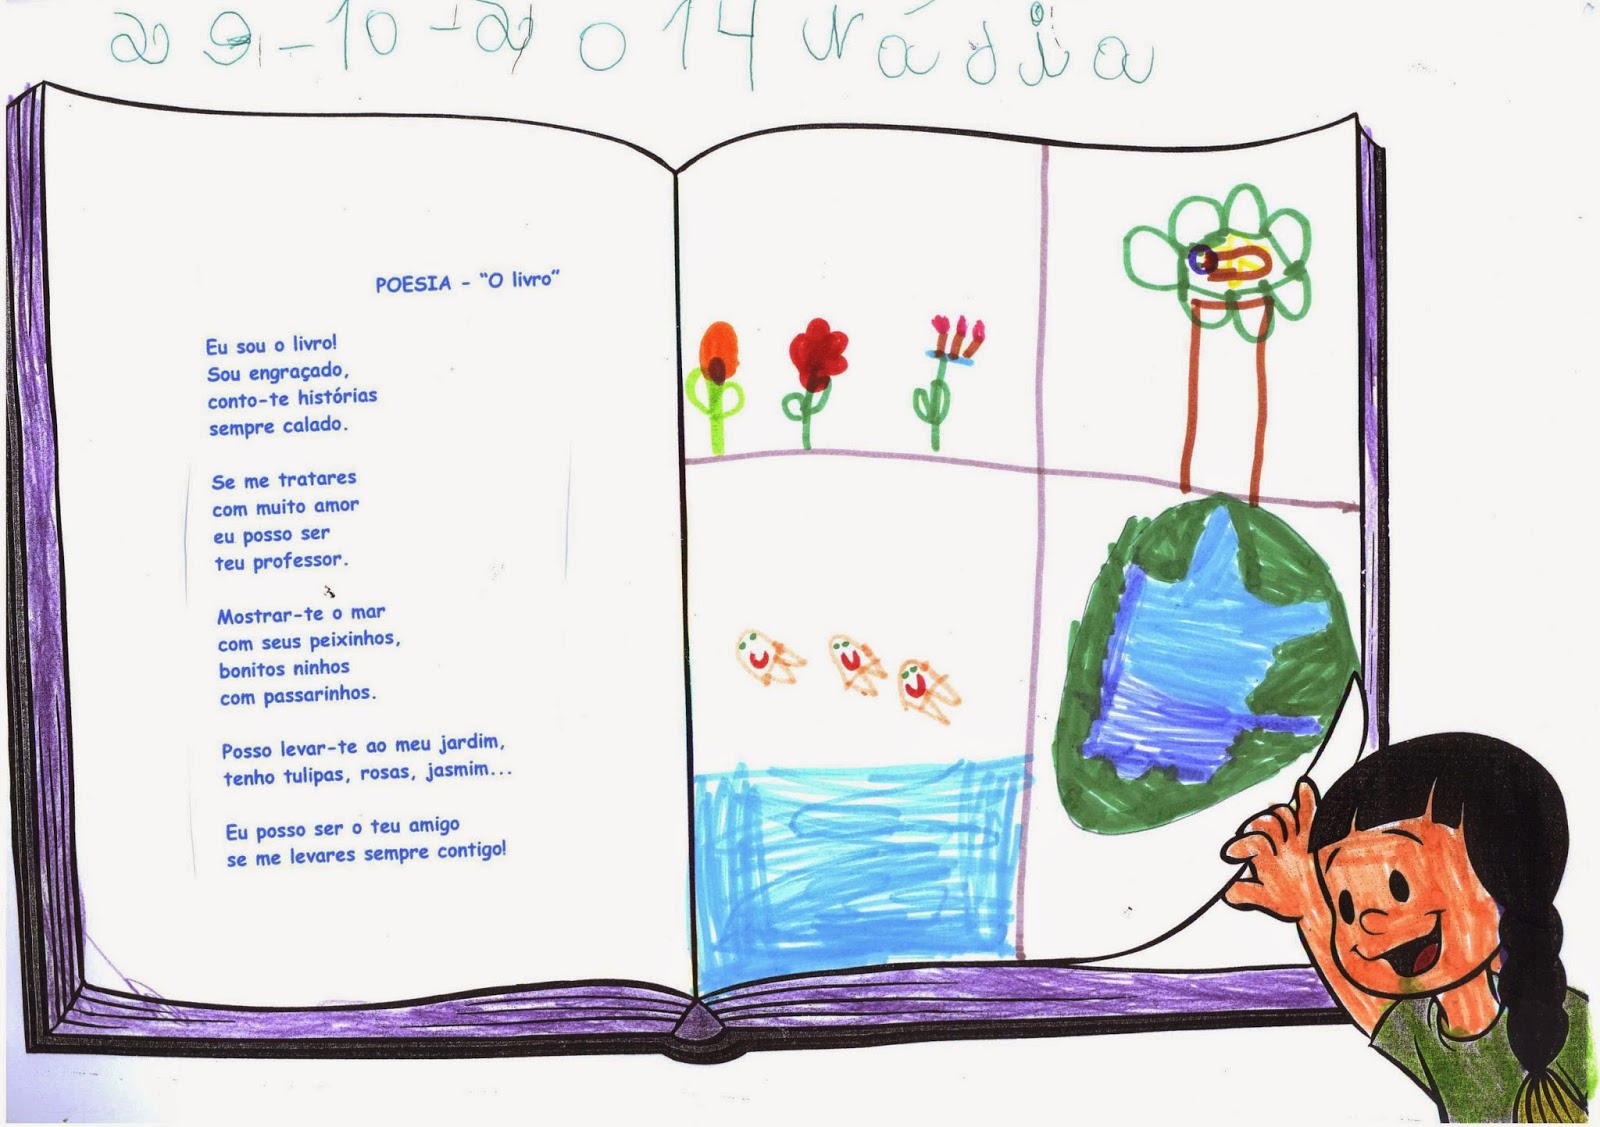 29-10-2014 Nádia
POESIA - "O livro"
Eu sou o livro!
Sou engraçado,
conto-te histórias
sempre calado.
Se me tratares
com muito amor
eu posso ser
teu professor.
Mostrar-te o mar
com seus peixinhos,
bonitos ninhos
com passarinhos.
Posso levar-te ao meu jardim,
tenho tulipas, rosas, jasmim...
Eu posso ser o teu amigo
se me levares sempre contigo!